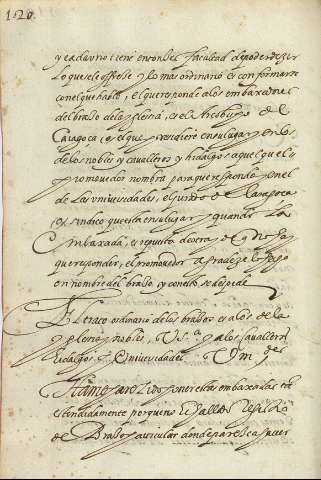 120.
y cada vno tiene entonces facultad de poder dezir
lo que se le offrece y lo mas ordinario es conformarse
con el que hablo, el que responde a los embaxadores
del braço de la yglesia, es el Arçobispo de
Caragoça, o el que presidiere en su lugar, en los
de los nobles y caualleros y hidalgos aquel que el
promouedor nombra para que responda, en el
de las Vniuersidades, el jurado de Caragoça
o sindico que esta en su lugar y quando la
Embaxada, es repuesta de otra, de que no hay
que responder, el promouedor agradeze
en nombre del braço y con esto se despide
El trato ordinario de los braços es a los de la
yglesia y nobles, V. s.ª y a los Caualleros
hidalgos, y Vniuersidades Vm des
Hame parezido poner estas embaxadas tan
estendidamente porque no se halla
de Braço particular donde parezca hauer